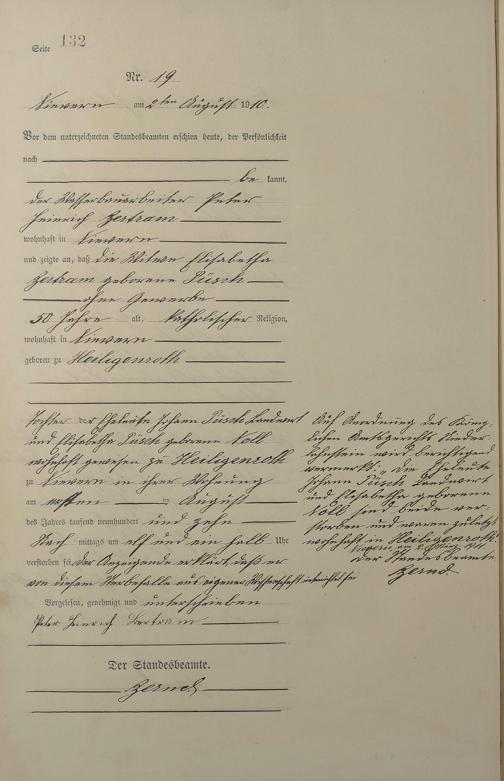 Seite 132
Nr. 19
Nievern am 2ten August 1910.
Vor dem unterzeichneten Standesbeamten erschien heute, der Persönlichkeit
nach
be kannt,
der Wasserbauarbeiter Peter
Heinrich Bertram
wohnhaft in Nievern
und zeigte an, daß die Witwe Elisabetha
Bertram geborene Püsch
ohne Gewerbe
50 Jahre alt, katholischer Religion,
wohnhaft in Nievern
geboren zu Heiligenroth
Tochter der Eheleute Johann Püsch Landwirt
und Elisabetha Püsch geborene Noll
wohnhaft gewesen zu Heiligenroth
zu Nievern in ihrer Wohnung
am ersten August
des Jahres tausend neunhundert und zehn
Nach mittags um elf und ein halb Uhr
verstorben sei. Der Anzeigende erklärt, daß er
von diesem Sterbefalle aus eigener Wissenschaft unterrichtet sei
Vorgelesen, genehmigt und unterschrieben
Peter Heinrich Bertram
Der Standesbeamte.
Auf Anordnung des König-
lichen Amtsgerichts Nieder-
lahnstein wird berichtigend
vermerkt: "Die Eheleute
Johann Püsch Landwirt
und Elisabetha geborene
Noll sind beide ver-
storben und waren zuletzt
wohnhaft in Heiligenroth.
Nievern, am
Der Standesbeamte